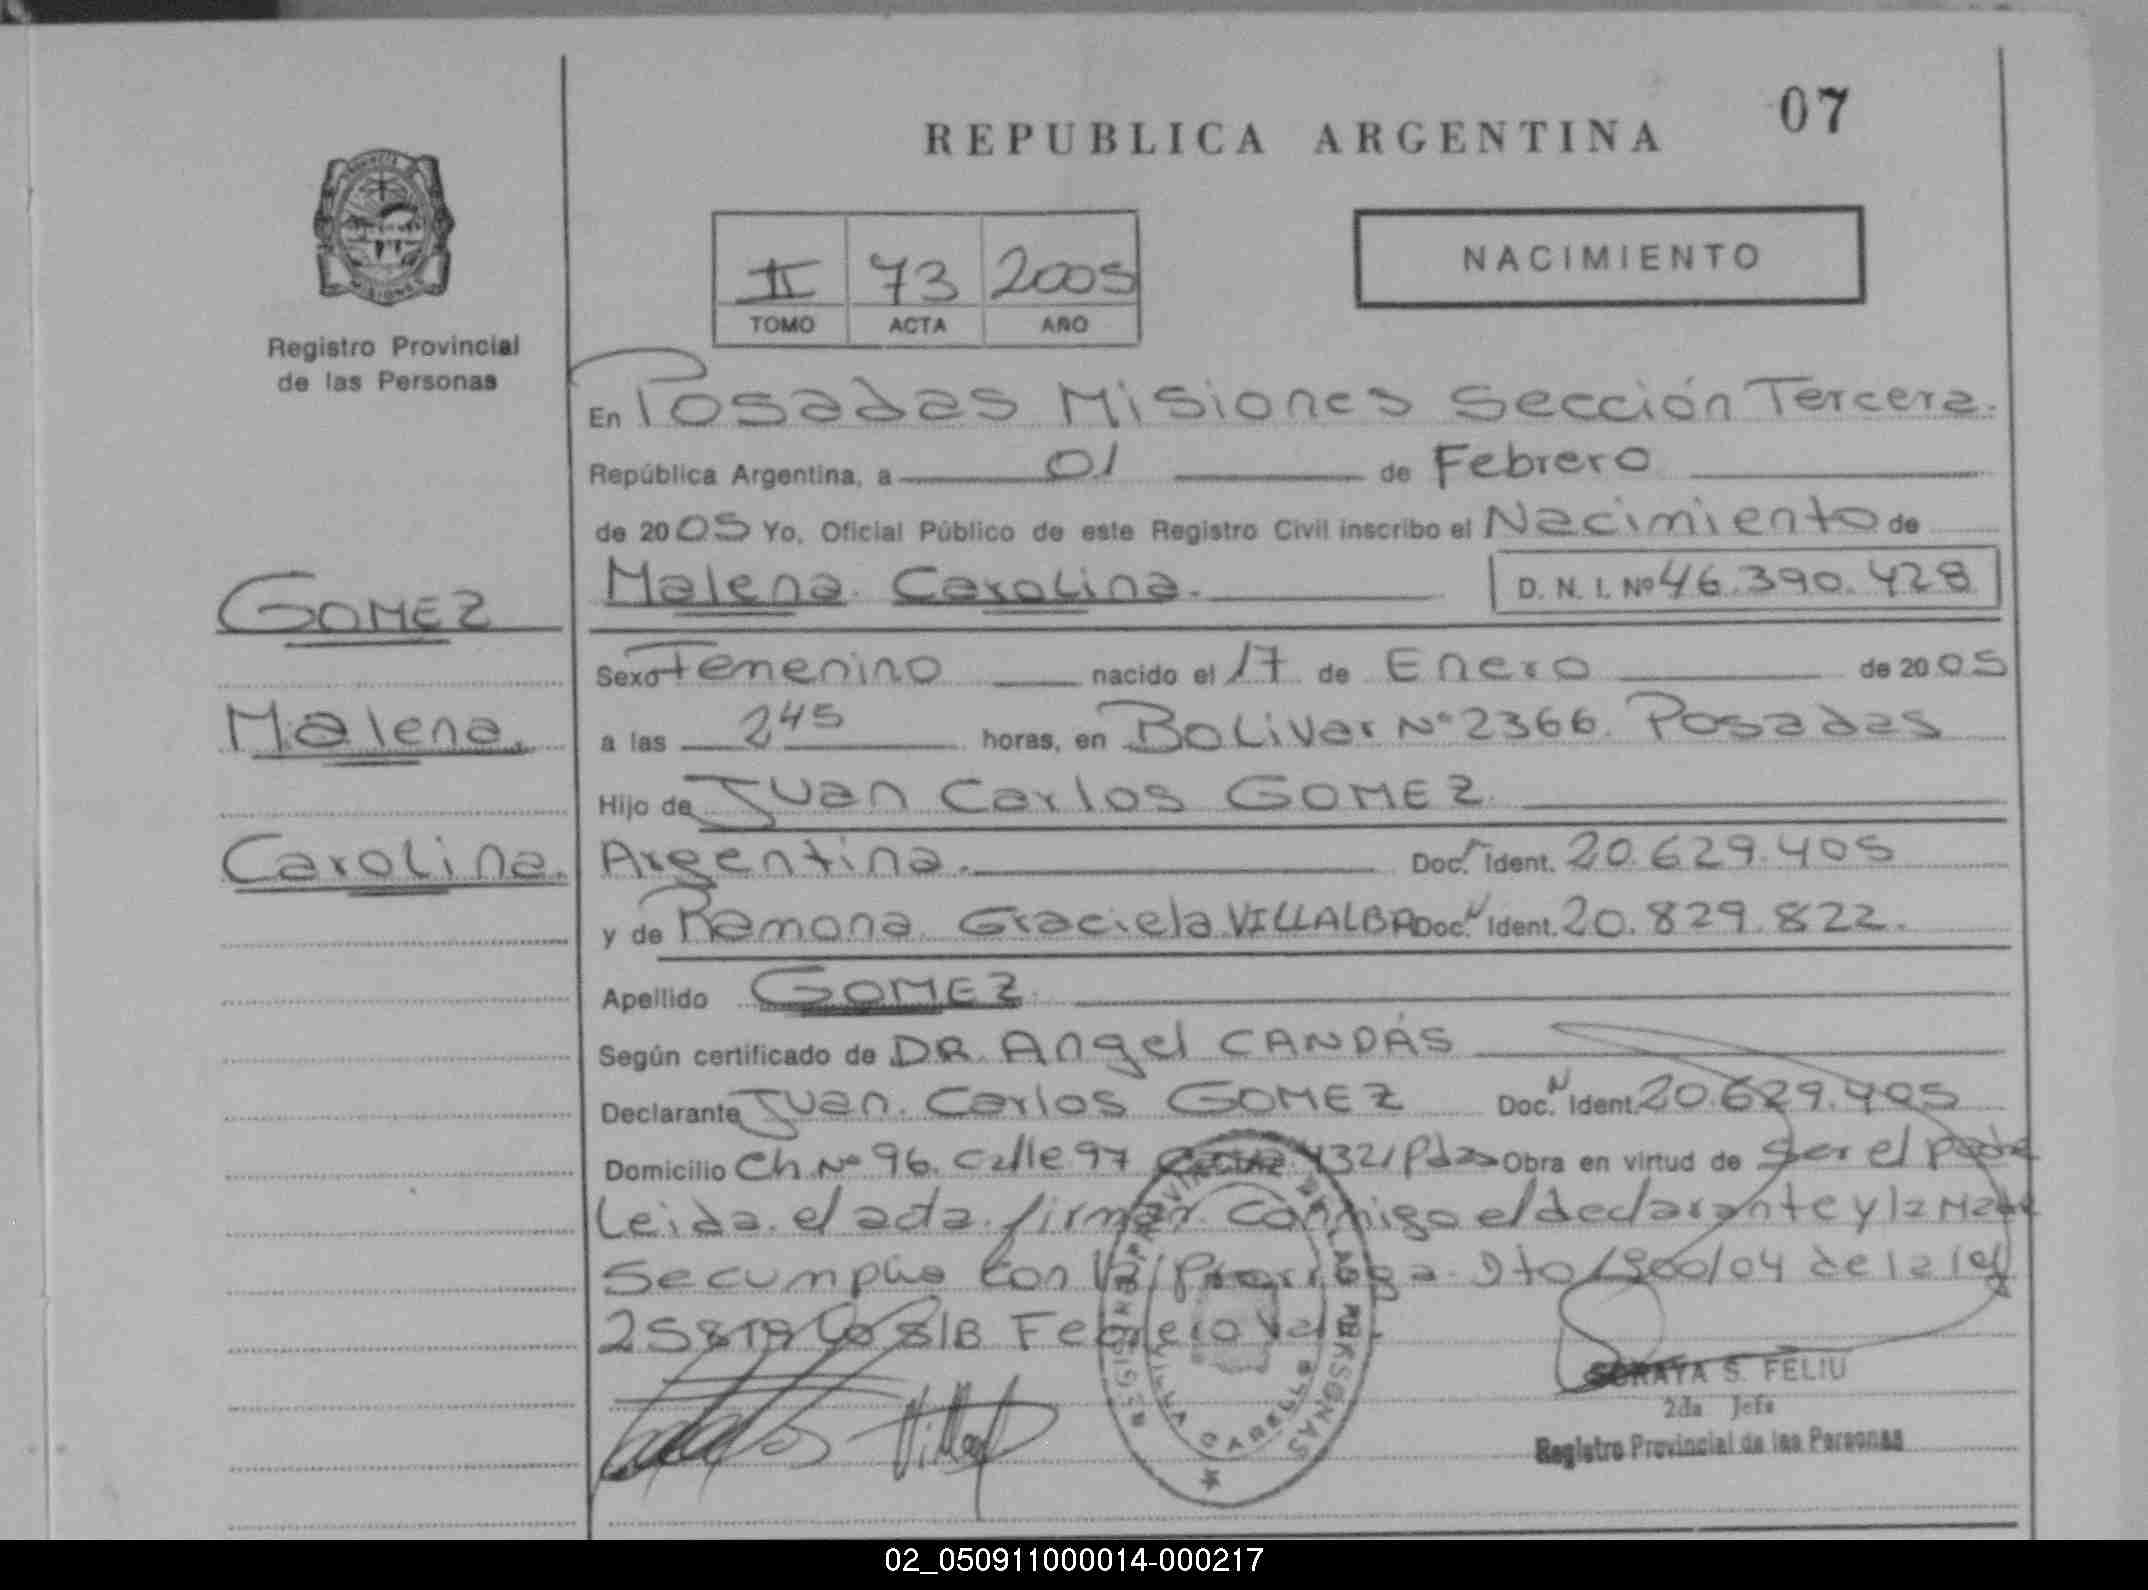 REPUBLICA ARGENTINA
07
NACIMIENTO
II 73 2005
TOMO ACTA AÑO
Registro Provincial
de las Personas
En Posadas Misiones Sección Tercera.
República Argentina, a 01 de Febrero
de 2005 Yo, Oficial Público de este Registro Civil inscribo el Nacimiento de
GOMEZ
Malena Carolina. D. N. I. Nº 46.390.428
Sexo Femenino nacido el 17 de Enero de 2005
Malena.
a las 2 45 horas, en Bolivar Nº 2366. Posadas
Hijo de Juan Carlos GOMEZ.
Carolina.
Argentina. Doc. N Ident. 20.629.405
y de Ramona Graciela VILLALBA Doc. N Ident. 20.829.822.
Apellido GOMEZ.
Según certificado de DR. Angel CANDÁS
Declarante Juan Carlos GOMEZ Doc. N Ident. 20.629.405
Domicilio Ch. Nº 96. Calle 97 4321 Pdas Obra en virtud de ser el padre
Leida el acta firman conmigo el declarante y la Madre
Se cumplio con la prorroga Dto 1900/04 de la ley
Febrero Vale.
REGISTRO PROVINCIAL DE LAS PERSONAS
VILLA CABELLO
SORAYA S. FELIU
2da Jefe
Registro Provincial de las Personas
02_050911000014-000217